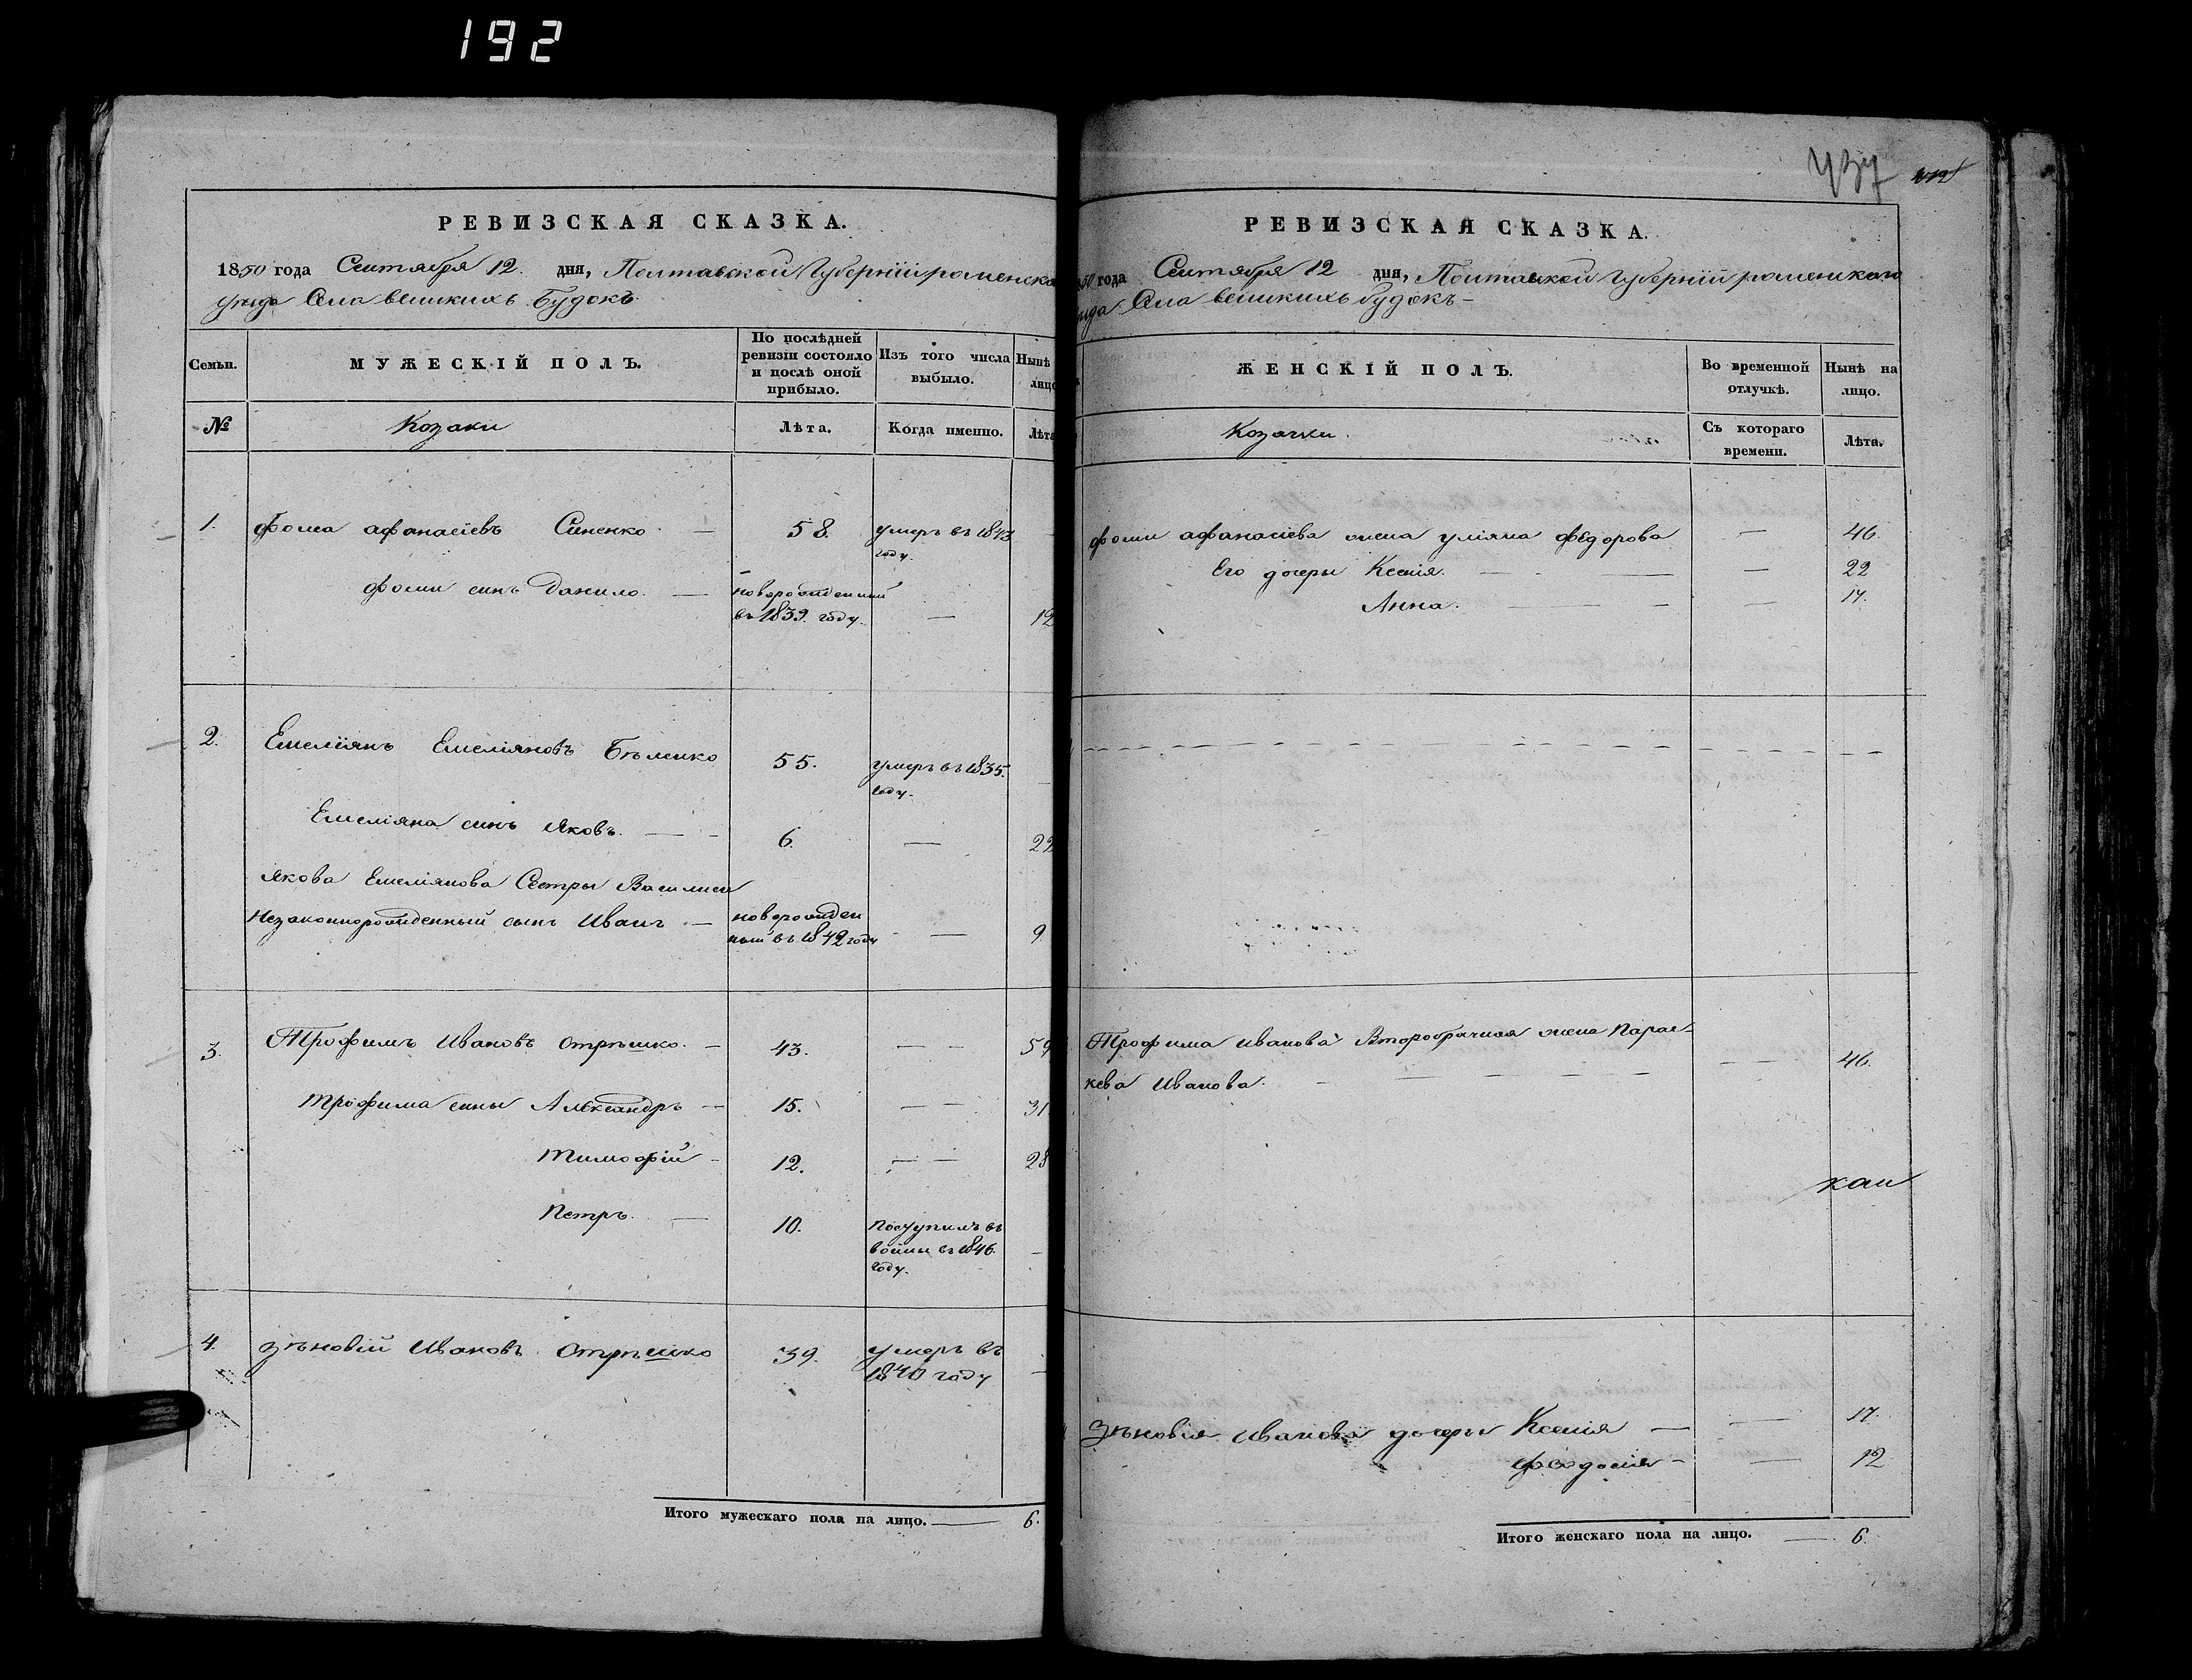 192
РЕВИЗСКАЯ СКАЗКА.
1850 года Сентября 12. дня, Полтавской Губерніи роменска
уезда Села великихъ Будокъ.
Семьи.
МУЖЕСКІЙ ПОЛЪ.
По послѣдней
ревизіи состояло
и послѣ оной
прибыло.
Изъ того числа
выбыло.
Нынѣ
лицо
№
Козаки
Лѣта.
Когда именно.
Лѣта
1. Фома афанасіевъ Синенко — 58. умеръ въ 1843
году.
фоми синъ Данило. — новорожденний
въ 1839. году. — 12
2. Емеліянъ Емеліяновъ Бѣленко 55. умеръ въ 1835.
году.
Емеліяна синъ Яковъ. — - 6. — 22
Якова Емеліянова Сестры Василиси
Незаконнорожденный сынъ Иванъ — новорожден
ный въ 1842 году — 9
3. Трофимъ Ивановъ Стрѣшко. - 43. — — 59
Трофима сины Александръ — 15. — — 31
Тимофій - 12. — — 28
Петръ. — 10. поступилъ въ
воини въ 1846.
году.
4. Зѣновій Ивановъ Стрѣшко 39. умеръ въ
1840 году —
Итого мужескаго пола на лицо. — 6.
РЕВИЗСКАЯ СКАЗКА.
50 года Сентября 12 дня, Полтавской Губерніи роменского
Села великихъ будокъ –
ЖЕНСКІЙ ПОЛЪ.
Во временной
отлучкѣ.
Нынѣ на
лицо.
Козачки.
Съ котораго
времени.
Лѣта.
фоми афанасіева жена уліяна федорова — 46.
Его дочеры Ксенія. — — — 22
Анна. — — — 17.
Трофима иванова Второбрачная жена Парас-
кева Иванова. - — — — 46.
Зѣновія иванова дочеры Ксенія — — 17.
феодосія - — 12
Итого женскаго пола на лицо. — 6.